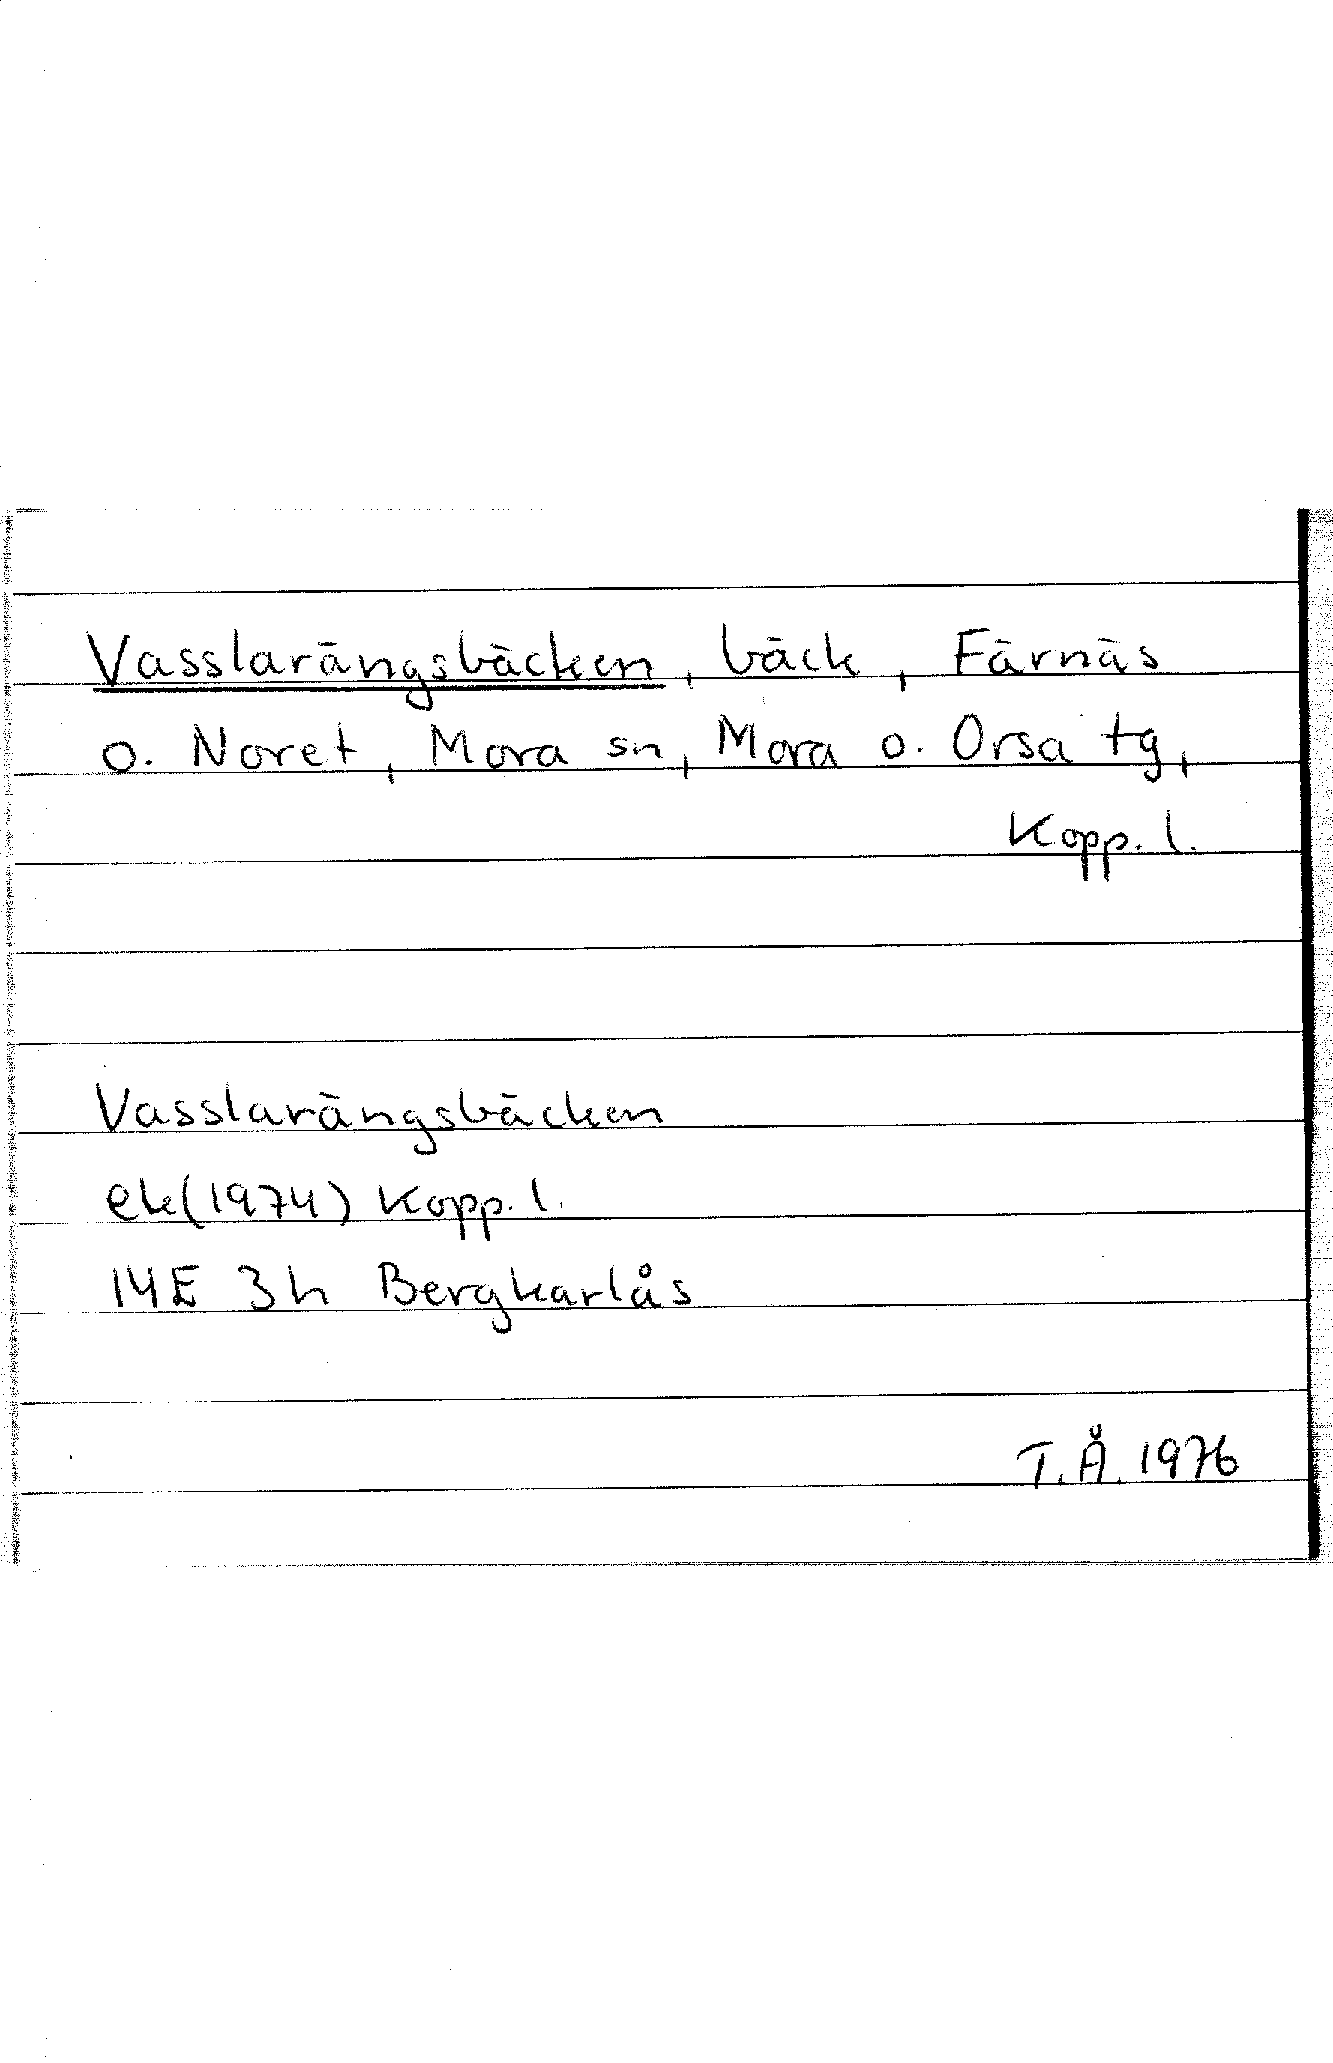 Vasslarängsbäcken, bäck, Färnäs
o. Noret, Mora sn, Mora o. Orsa tg,
Kopp. l.
Vasslarängsbäcken
ek(1974) Kopp. l.
14E 3h Bergkarlås
T.Å. 1976